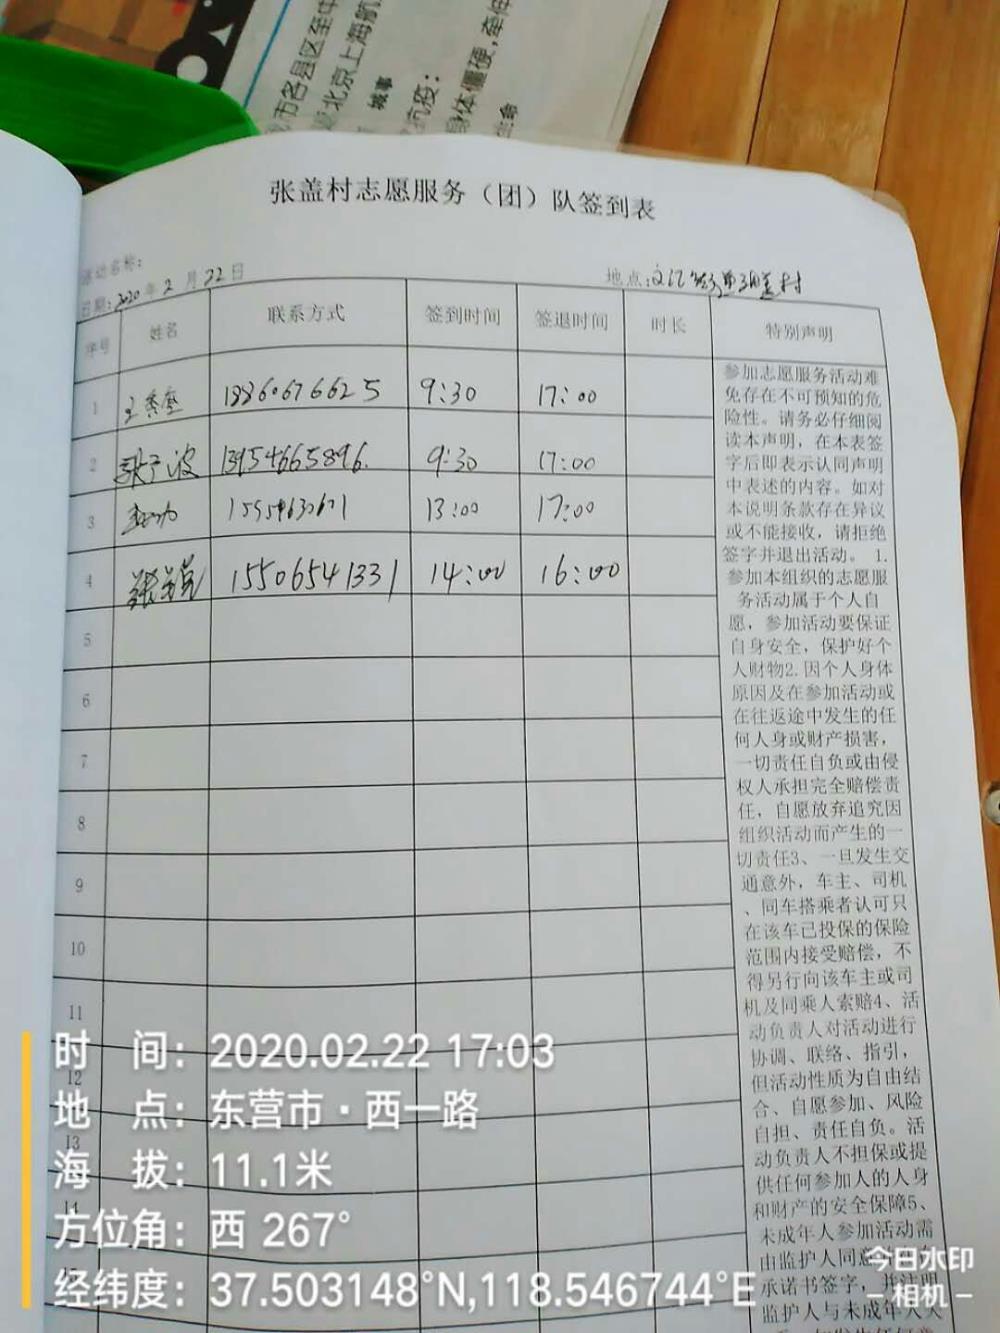 市各县区至中
北京上海航
城事
抗疫：
身体僵硬,牵伸
生命
张盖村志愿服务（团）队签到表
活动名称：
日期：2020年2月22日
地点：
序号 姓名 联系方式 签到时间 签退时间 时长 特别声明
1 18860676625 9:30 17:00
2 波 13954665896. 9:30 17:00
3 13:00 17:00
4 15506541331 14:00 16:00
5
6
7
8
9
10
11
12
13
14
参加志愿服务活动难
免存在不可预知的危
险性。请务必仔细阅
读本声明，在本表签
字后即表示认同声明
中表述的内容。如对
本说明条款存在异议
或不能接收，请拒绝
签字并退出活动。 1.
参加本组织的志愿服
务活动属于个人自
愿，参加活动要保证
自身安全，保护好个
人财物2.因个人身体
原因及在参加活动或
在往返途中发生的任
何人身或财产损害，
一切责任自负或由侵
权人承担完全赔偿责
任，自愿放弃追究因
组织活动而产生的一
切责任3、一旦发生交
通意外，车主、司机
、同车搭乘者认可只
在该车已投保的保险
范围内接受赔偿，不
得另行向该车主或司
机及同乘人索赔4、活
动负责人对活动进行
协调、联络、指引，
但活动性质为自由结
合、自愿参加、风险
自担、责任自负。活
动负责人不担保或提
供任何参加人的人身
和财产的安全保障5、
未成年人参加活动需
由监护人同意
承诺书签字，并注明
监护人与未成年人
时 间：2020.02.22 17:03
地 点：东营市·西一路
海 拔：11.1米
方位角：西 267°
经纬度：37.503148°N,118.546744°E
今日水印
－相机－